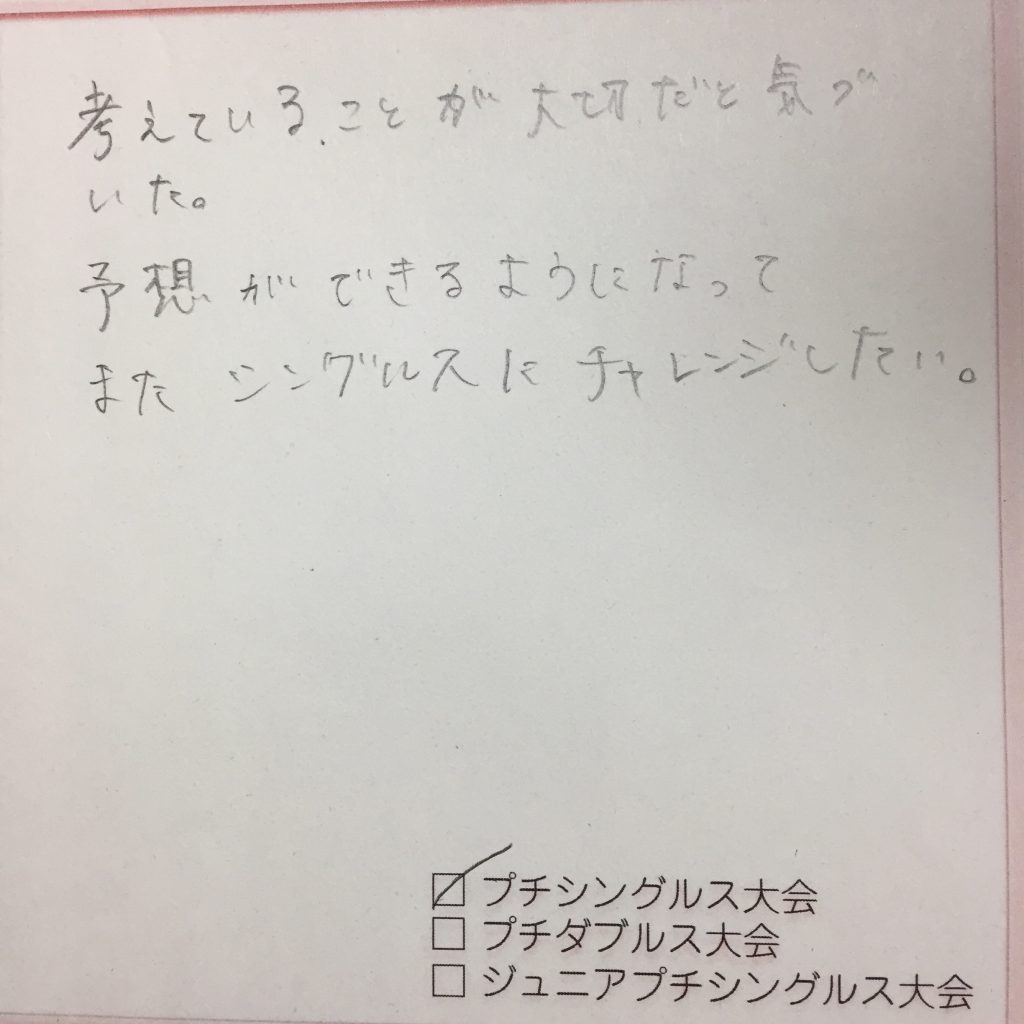 考えていることが大切だと気づ
いた。
予想ができるようになって
またシングルスにチャレンジしたい。
プチシングルス大会
プチダブルス大会
ジュニアプチシングルス大会